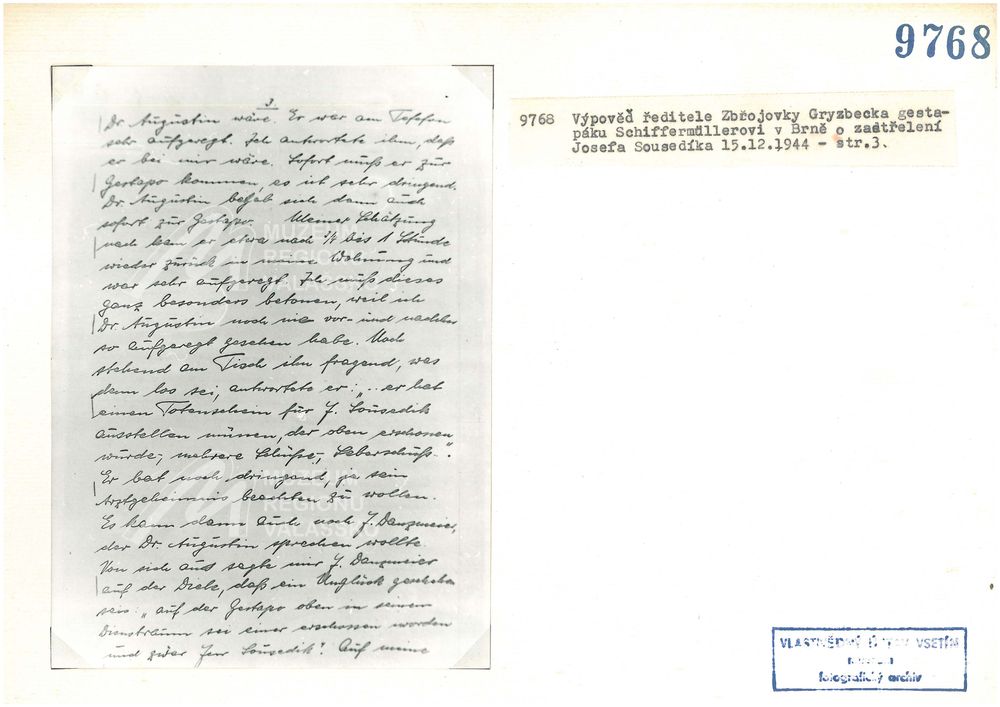 9768
9768 Výpověď ředitele Zbrojovky Gryzbecka gesta-
páku Schiffermüllerovi v Brně o zastřelení
Josefa Sousedíka 15.12.1944 - str.3.
3.
Dr. Augustin wäre. Er war am Telefon
sehr aufgeregt. Ich antwortete ihm, daß
er bei mir wäre. Sofort muß er zur
Gestapo kommen, es ist sehr dringend.
Dr. Augustin begab sich dann auch
sofort zur Gestapo. Meiner Schätzung
nach kam er etwa nach 3/4 bis 1 Stunde
wieder zurück in meine Wohnung und
war sehr aufgeregt. Ich muß dieses
ganz besonders betonen, weil ich
Dr. Augustin noch nie vor- und nachher
so aufgeregt gesehen habe. Noch
stehend am Tisch ihn fragend, was
denn los sei, antwortete er: „.. er hat
einen Totenschein für J. Sousedik
ausstellen müssen, der oben erschossen
würde, mehrere Schüße, Leberschuß.."
Er bat noch dringend, ja sein
Arztgeheimnis beachten zu wollen.
Es kam dann auch noch J. Danzmeier,
der Dr. Augustin sprechen wollte.
Von sich aus sagte mir J. Danzmeier
auf der Diele, daß ein Unglück geschehen
sei: „auf der Gestapo oben in seinem
Dienstraum sei einer erschossen worden
und zwar Sousedik! Auf meine
MUZEUM
REGIONU
VALAŠSKO
MUZEUM
REGIONU
VALAŠSKO
VLASTIVĚDNÝ ÚSTAV VSETÍN
fotografický archiv